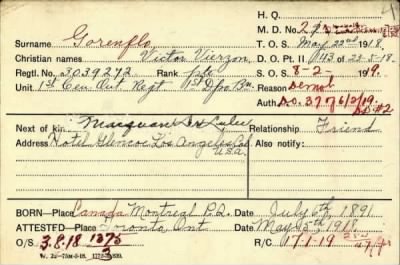 H. Q.
M. D. No. 2
Surname Gorenflo,
T. O. S. May 22nd 1918.
Christian names Victor Vierzon
D. O. Pt. II 113 of 23-5-18.
Regtl. No. 3039272 Rank Pte
S. O. S. 8-2-1919.
Unit 1st Cen. Ont. Regt 1st Depo Bn.
Reason Demob
Auth. D.O. 37 6/2/19.
DD #2
Next of kin
Relationship Friend
Address Hotel Glencoe Los Angeles Cal
Also notify:
U.S.A.
BORN—Place Canada Montreal P.Q. Date July 6th, 1891
ATTESTED—Place Toronto Ont Date May 15th, 191
O/S 3.8.18 1375
R/C 17.1.19